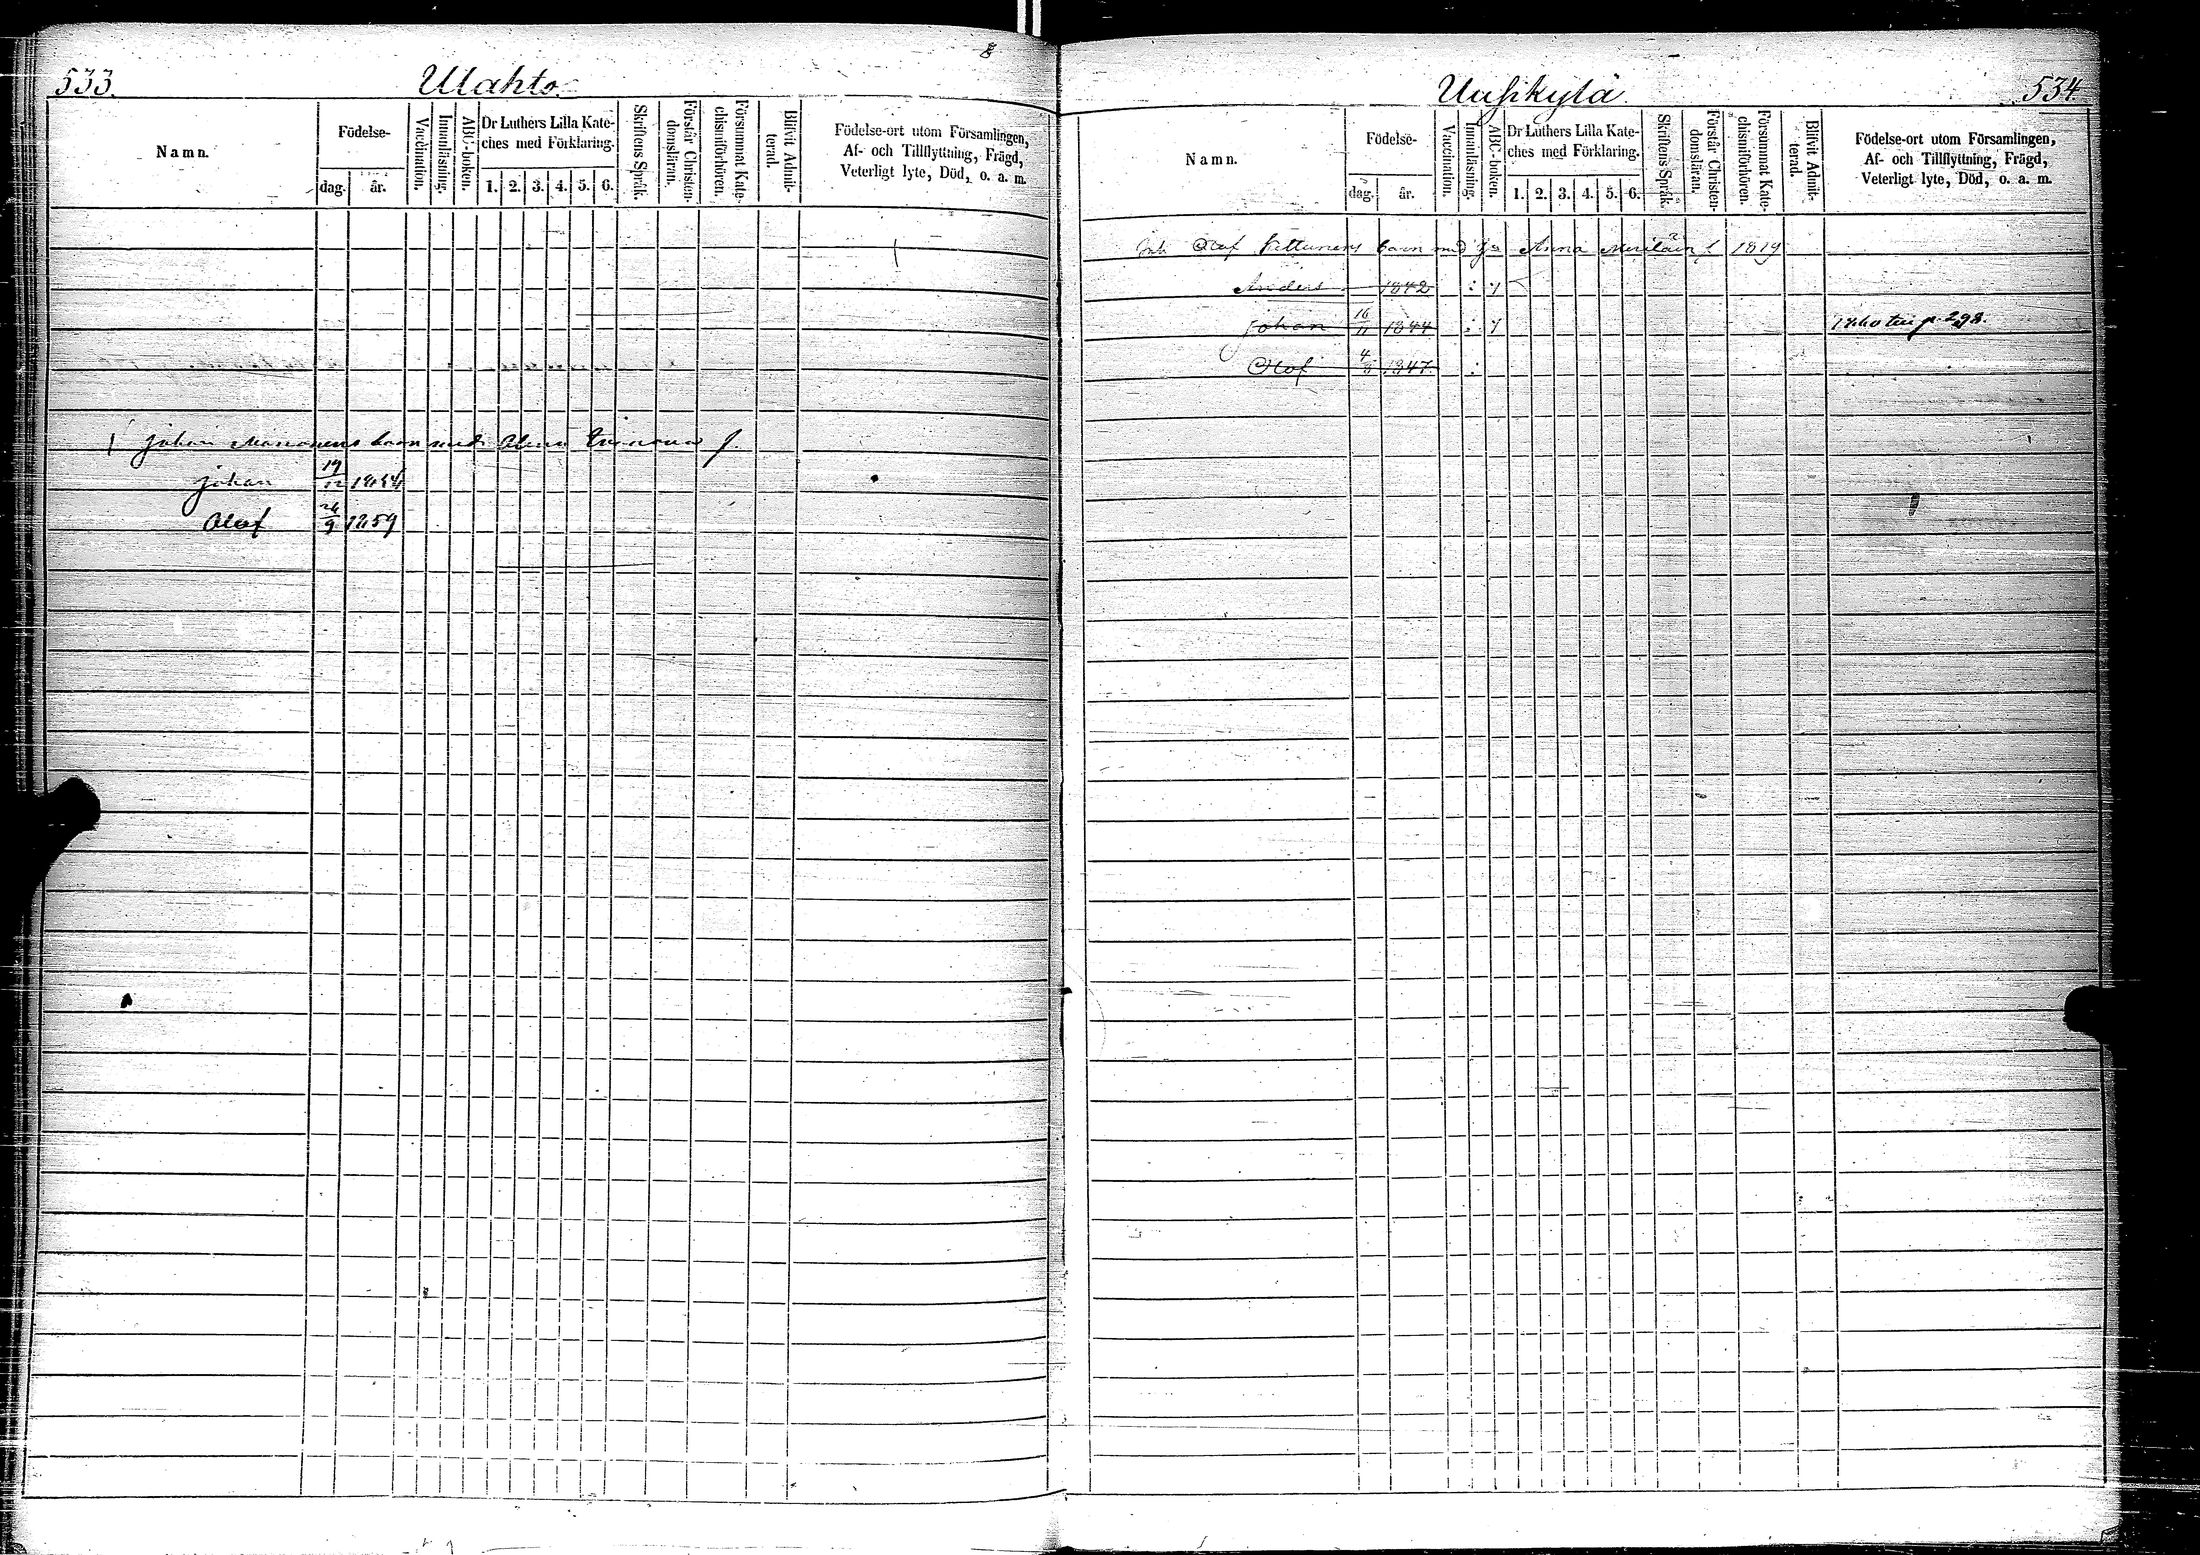 533.
Ulahto.
Namn.
Födelse-
dag.
år.
Vaccination.
Innanläsning.
ABC-boken.
Dr Luthers Lilla Kate-
ches med Förklaring.
1. 2. 3. 4. 5. 6.
Skriftens Språk.
Förstår Christen-
domsläran.
Försummat Kate-
chismiförhören.
Blifvit Admit-
terad.
Födelse-ort utom Församlingen,
Af- och Tillflyttning, Frägd,
Veterligt lyte, Död, o. a. m.
Johan barn med
Johan 19/12
Olof 26/9 1859
8
Uusikylä
534.
Namn.
Födelse-
dag.
år.
Vaccination.
Innanläsning.
ABC-boken.
Dr Luthers Lilla Kate-
ches med Förklaring.
1. 2. 3. 4. 5. 6.
Skriftens Språk.
Förstår Christen-
domsläran.
Försummat Kate-
chismiförhören.
Blifvit Admit-
terad.
Födelse-ort utom Församlingen,
Af- och Tillflyttning, Frägd,
Veterligt lyte, Död, o. a. m.
Olof barn med Anna f 1819
Anders 1842
Johan 16/11 1844 p. 298.
Olof 1847